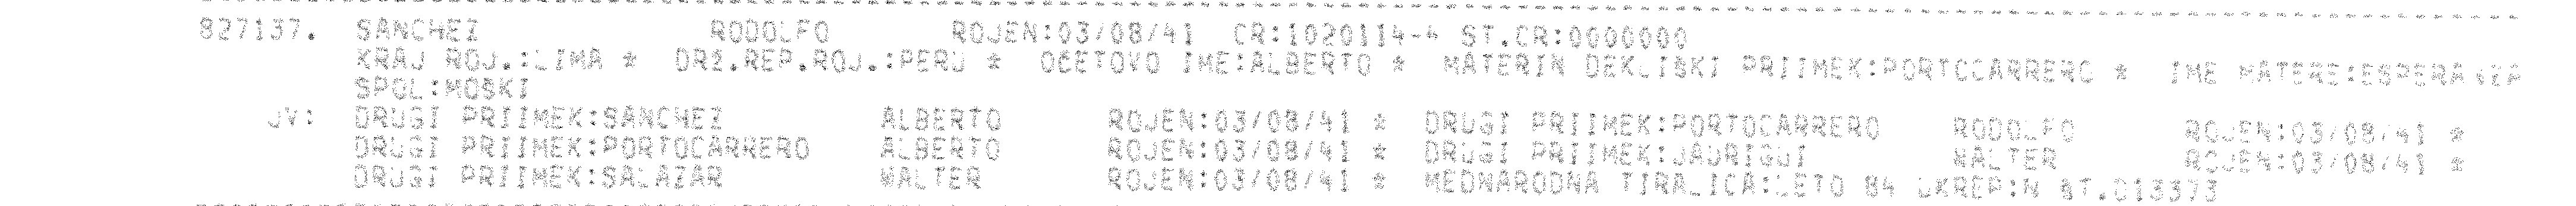 827137. SANCHEZ RODOLFO ROJEN:03/08/41 CR:1020114-4 ST.CR:0000000
KRAJ ROJ.:LIMA * DRŽ.REP.ROJ.:PERU * OČETOVO IME:ALBERTO * MATERIN DEKLIŠKI PRIIMEK:PORTOCARRERO * IME MATERE:ESPERANZA
SPOL:MOŠKI
JV: DRUGI PRIIMEK:SANCHEZ ALBERTO ROJEN:03/08/41 * DRUGI PRIIMEK:PORTOCARRERO RODOLFO ROJEN:03/08/41 *
DRUGI PRIIMEK:PORTOCARRERO ALBERTO ROJEN:03/08/41 * DRUGI PRIIMEK:JAURIGUI WALTER ROJEN:03/08/41 *
DRUGI PRIIMEK:SALAZAR WALTER ROJEN:03/08/41 * MEDNARODNA TIRALICA:LETO 84 UKREP:N ŠT.013373